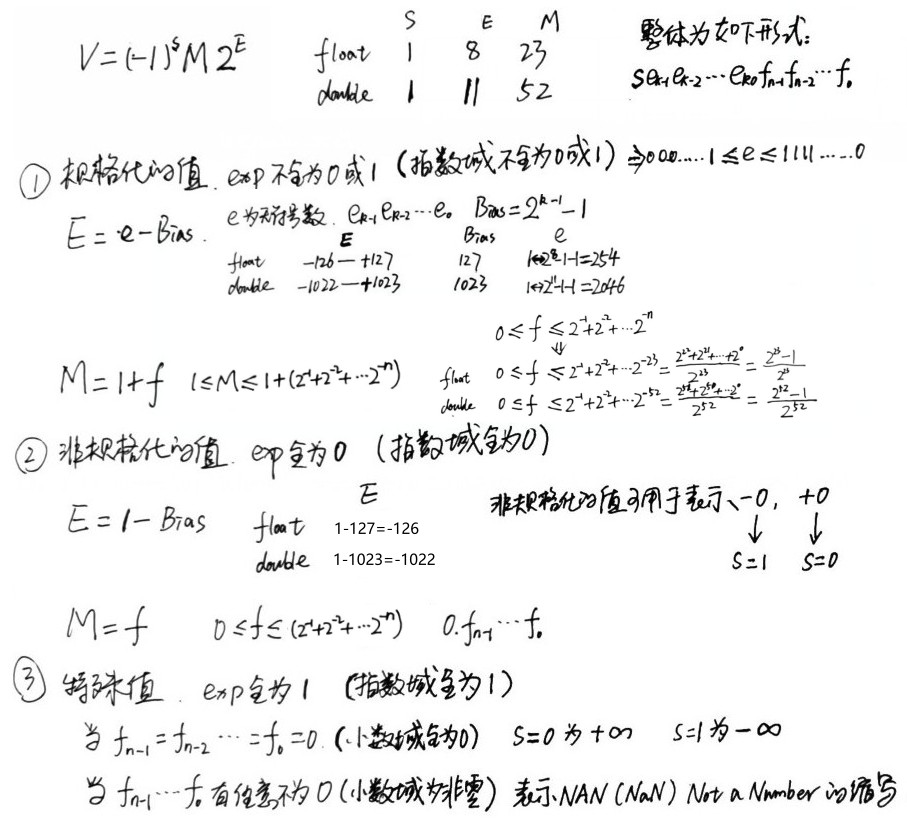 S E M
V=(-1)^s M 2^E float 1 8 23 整体为如下形式:
double 1 11 52 se_{k-1}e_{k-2}…e_{k0}f_{n-1}f_{n-2}…f_0
① 规格化的值. exp不全为0或1 (指数域不全为0或1) ⇒000……1≤e≤1111……0
E=e-Bias. e为无符号数. e_{k-1}e_{k-2}…e_0 Bias=2^{k-1}-1
E Bias e
float -126—+127 127 1↔2^8-1-1=254
double -1022—+1023 1023 1↔2^11-1-1=2046
0≤f≤2^{-1}+2^{-2}+…2^{-n}
⇓
M=1+f 1≤M≤1+(2^{-1}+2^{-2}+…2^{-n}) float 0≤f≤2^{-1}+2^{-2}+…2^{-23}=\frac{2^{22}+2^{21}+…+2^0}{2^{23}}=\frac{2^{23}-1}{2^{23}}
double 0≤f≤2^{-1}+2^{-2}+…2^{-52}=\frac{2^{51}+2^{50}+…2^0}{2^{52}}=\frac{2^{52}-1}{2^{52}}
② 非规格化的值. exp全为0 (指数域全为0)
E 非规格化的值可用于表示、-0, +0
E=1-Bias float 1-127=-126 ↓ ↓
double 1-1023=-1022 S=1 S=0
M=f 0≤f≤(2^{-1}+2^{-2}+…2^{-n}) 0.f_{n-1}…f_0
③ 特殊值. exp全为1 (指数域全为1)
当 f_{n-1}=f_{n-2}…=f_0=0. (小数域全为0) S=0为+∞ S=1为-∞
当 f_{n-1}…f_0有任意不为0(小数域为非零) 表示NAN(NaN) Not a Number的缩写